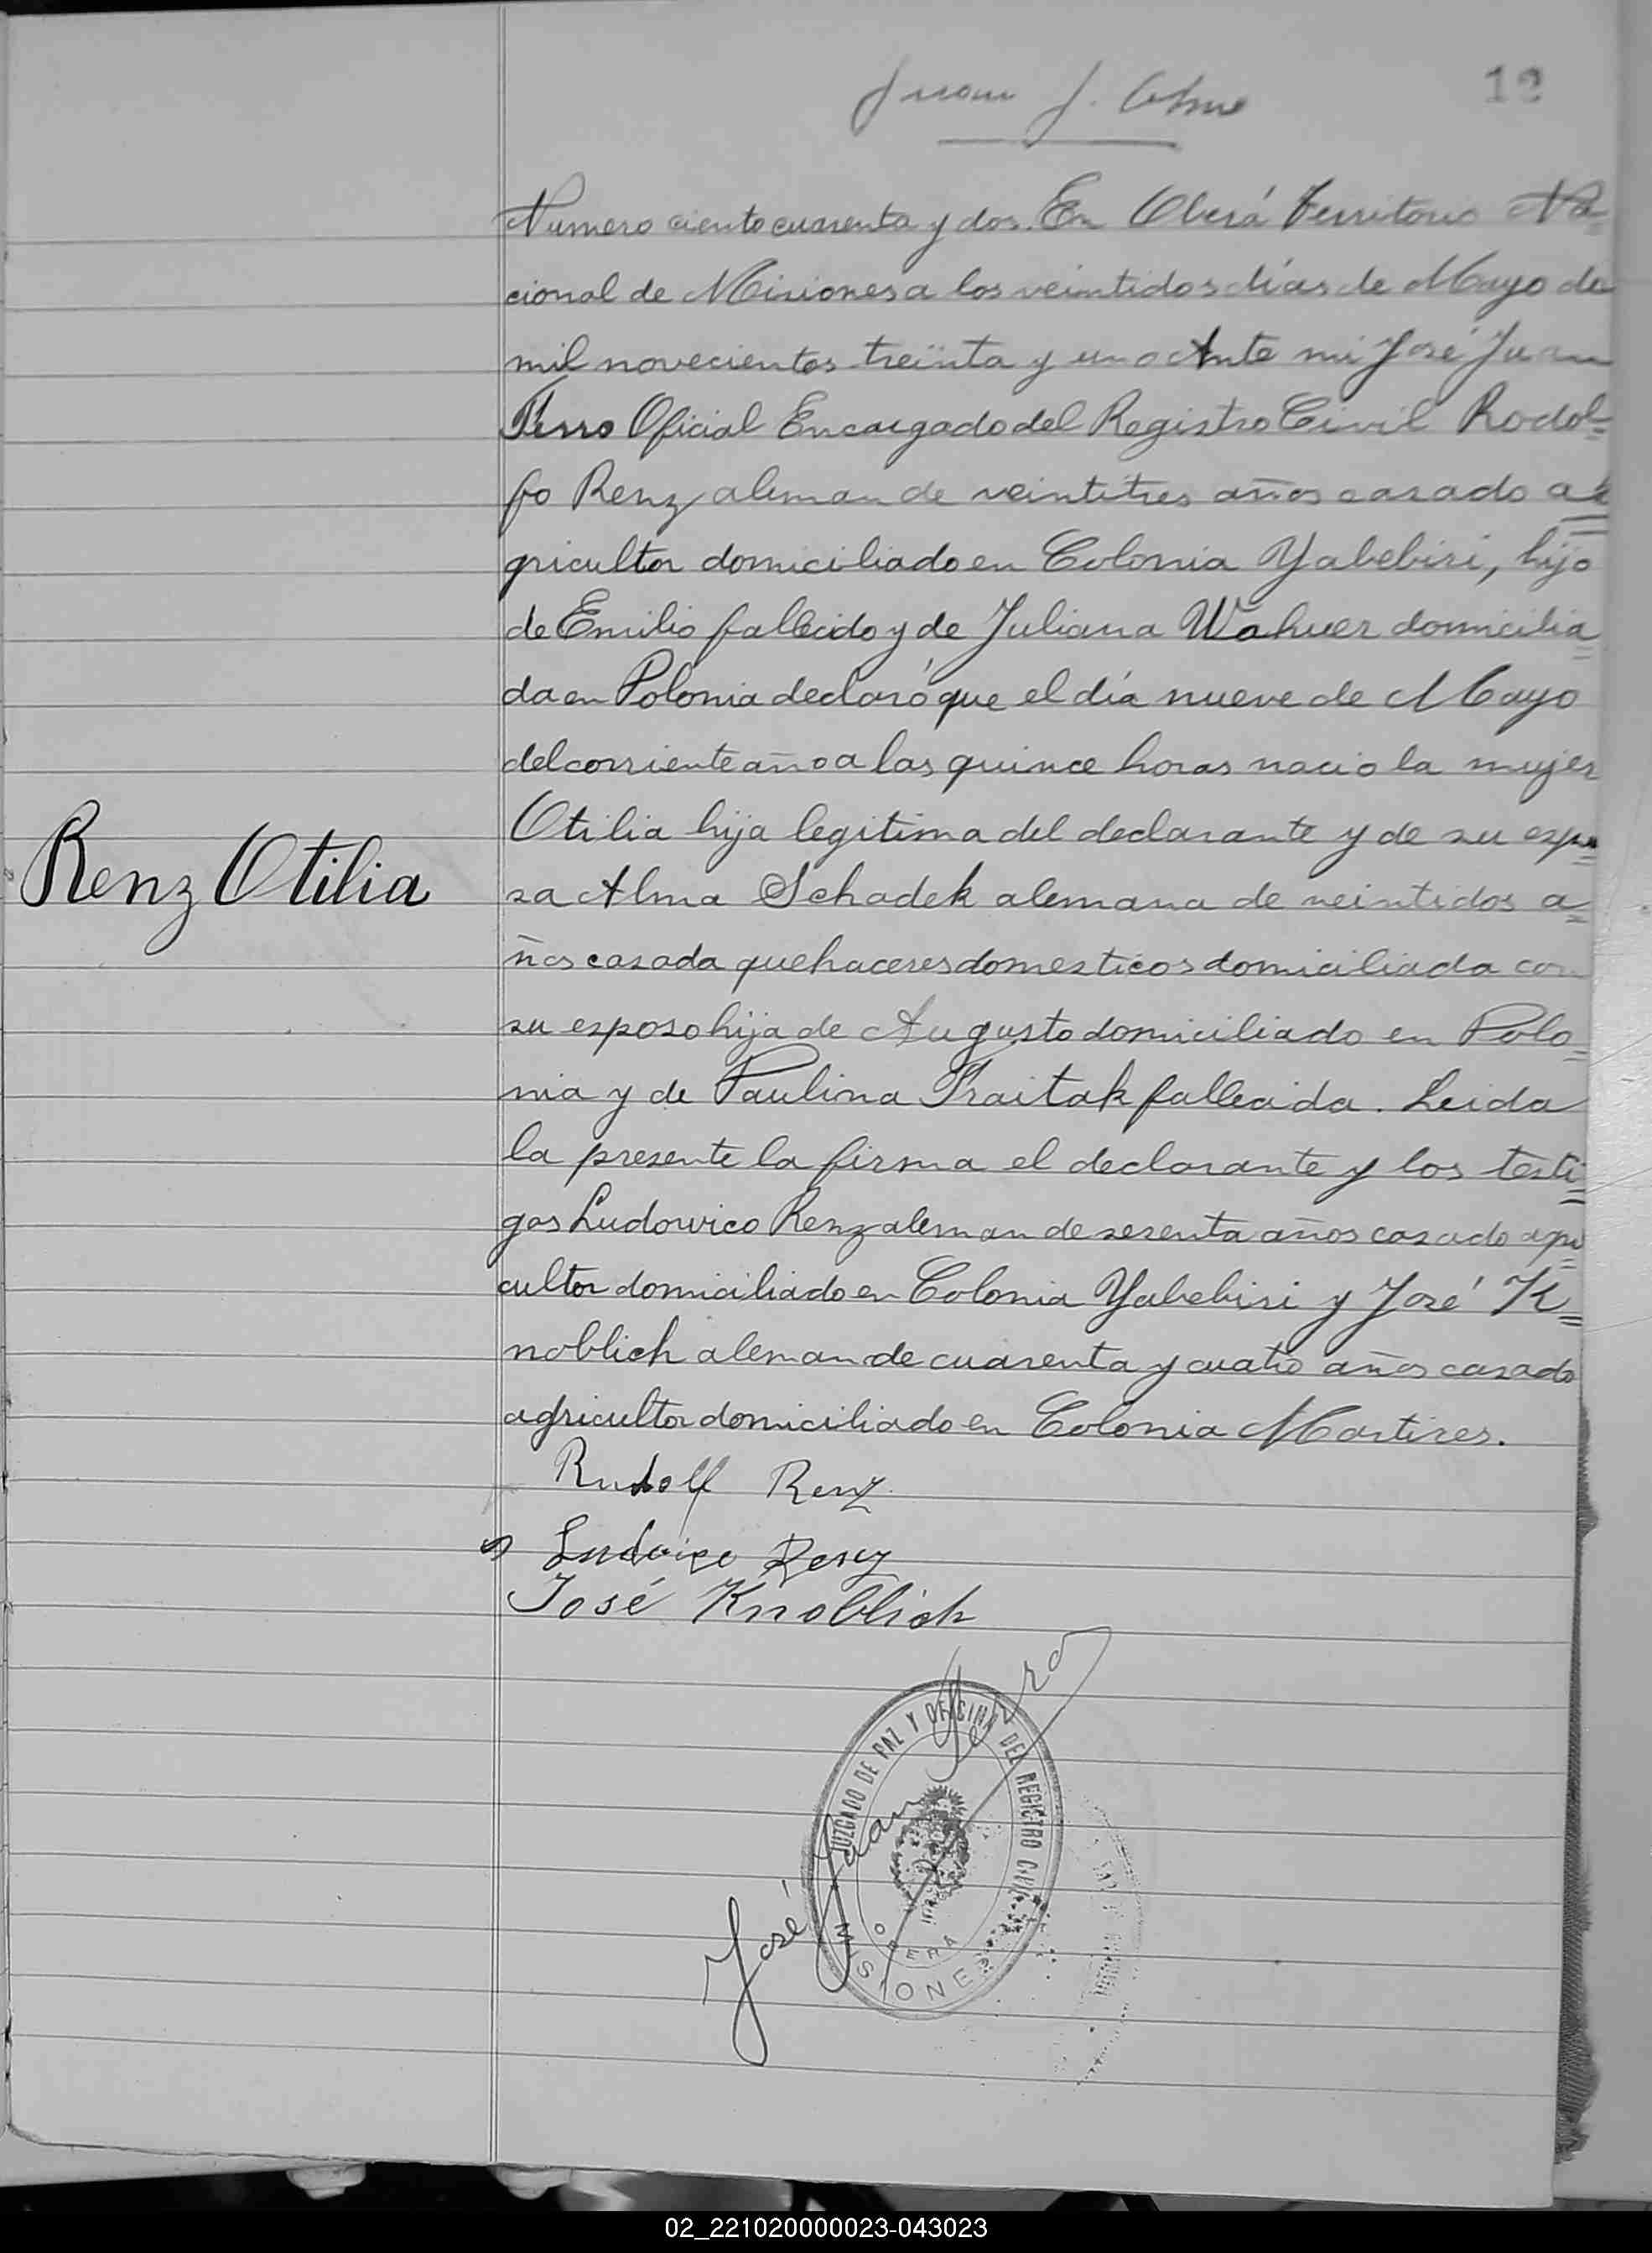 12
Numero ciento cuarenta y dos. En Oberá Territorio Na=
cional de Misiones a los veintidos días de Mayo de
mil novecientos treinta y uno Ante mi José Juan
Ferro Oficial Encargado del Registro Civil Rodol=
fo Renz aleman de veintitres años casado a=
gricultor domiciliado en Colonia Yabebiri, hijo
de Emilio fallecido y de Juliana Wahuer domicilia=
da en Polonia declaró que el día nueve de Mayo
del corriente año a las quince horas nacio la mujer
Otilia hija legitima del declarante y de su espo=
Renz Otilia
sa Alma Schadek alemana de veintidos a=
ños casada quehaceres domesticos domiciliada con
su esposo hija de Augusto domiciliado en Polo=
nia y de Paulina Traitak fallecida. Leida
la presente la firma el declarante y los testi=
gos Ludowico Renz aleman de sesenta años casado agri=
cultor domiciliado en Colonia Yabebiri y José K=
noblich aleman de cuarenta y cuatro años casado
agricultor domiciliado en Colonia Martires.
Rudolf Renz
Ludwigo Renz
José Knoblich
José Juan Ferro
JUZGADO DE PAZ Y OFICINA DEL REGISTRO CIVIL
OBERÁ
MISIONES
02_221020000023-043023